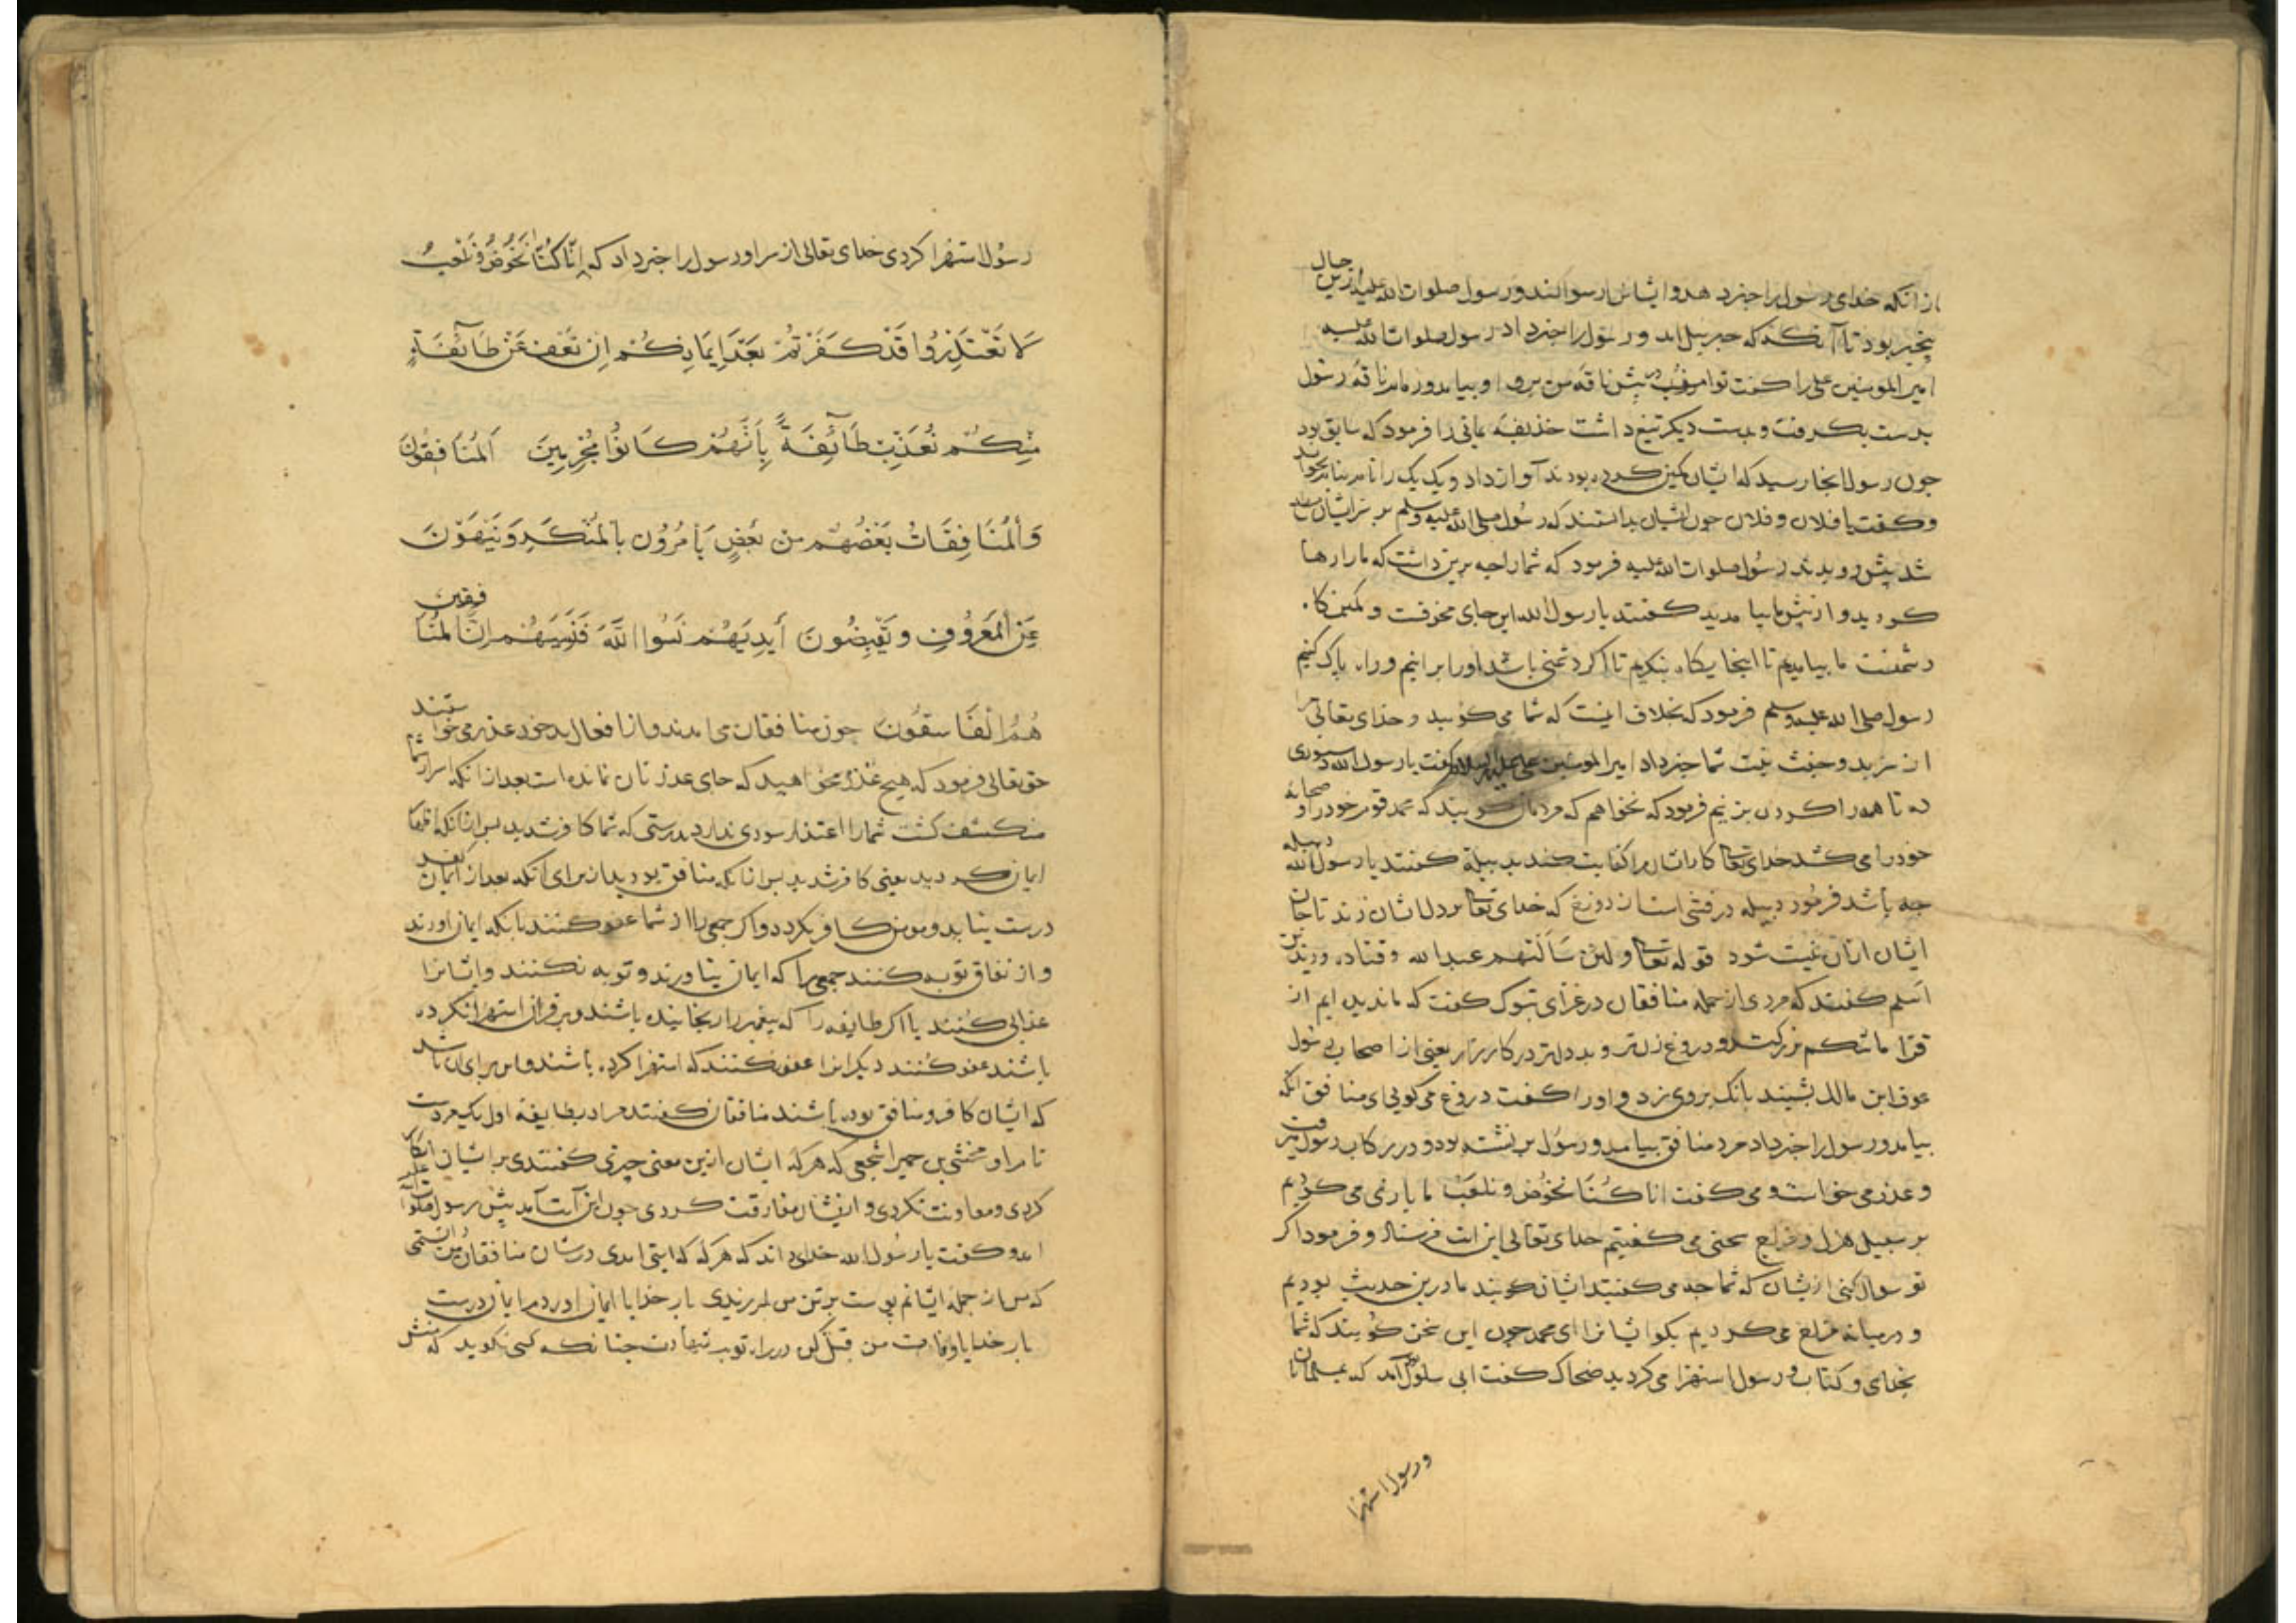 از انکه خدای رسول را خبر دهد و ایشان را رسوا کند و رسول صلوات الله علیه ازین حال
بیخبر بود تا آنکه که جبریل امد و رسول را خبر داد رسول صلوات الله علیه
امیر المومنین علی را کفت تو امروز در پیش ناقه من برو او بیامد و زمام ناقه رسول
بدست بکرفت و بدست دیکر تیغ داشت حذیفه یمانی را فرمود که سابق بود
جون رسول انجا رسید که ایشان کمین کرده بودند آواز داد و یک یک را نام بنام بخواند
و کفت یا فلان و فلان جون ایشان بدانستند که رسول صلی الله علیه وسلم بر سر ایشان مطلع
شد پیش دویدند رسول صلوات الله علیه فرمود که شما را جه برین داشت که ما را رها
کردید و از پیش ما بیامدید کفتند یا رسول الله این جای مخوفست و کمین کاه
دشمنست ما بیامدیم تا اینجا یکاه بنکریم تا اکر دشمنی باشد او را برانیم و راه پاک کنیم
رسول صلی الله علیه وسلم فرمود که بخلاف اینست که شما می کویید و خدای تعالی مرا
از سر بد و خبث نیت شما خبر داد امیر المومنین علی علیه السلام کفت یا رسول الله دستوری
ده تا همه را کردن بزنیم فرمود که نخواهم که مردمان کویند که محمد قوم خود را و صحابه
خود را می کشد خدای تعا کار ایشان را کفایت کند بدبیله کفتند یا رسول الله دبیله
جه باشد فرمود دبیله درفشی است از دوزخ که خدای تعا بر دل ایشان زند تا جان
ایشان ازان نیست شود قوله تعا ولئن سألتهم عبد الله و قتاده و زید بن
اسلم کفتند که مردی از جمله منافقان در غزای تبوک کفت که ما ندیده ایم از
قرا ما شکم بزرکتر و دروغ زن تر و بد دلتر در کارزار یعنی از اصحاب رسول
عوف ابن مالک بشنید بانک بر وی زد و او را کفت دروغ می کویی ای منافق انکه
بیامد و رسول را خبر داد مرد منافق بیامد و رسول بر نشسته بود و در رکاب رسول میرفت
و عذر می خواست و می کفت انا کنا نخوض و نلعب ما بازی می کردیم
بر سبیل هزل و مزاح سخنی می کفتیم خدای تعالی این ایت فرستاد و فرمود اکر
تو سوال کنی ازیشان که شما جه می کفتید ایشان کویند ما درین حدیث بودیم
و درمیانه مزاح می کردیم بکو ایشانرا ای محمد جون این سخن کویند که شما
بخدای و کتاب و رسول استهزا می کردید ضحاک کفت ابی سلول آمد که بمسلمانان
و رسول استهزا
رسول استهزا کردی خدای تعالی از سر او رسول را خبر داد که إنا كنا نخوض و نلعب
لا تعتذروا قد كفرتم بعد إيمانكم ان نعف عن طائفة
منكم نعذب طائفة بأنهم كانوا مجرمين المنافقون
والمنافقات بعضهم من بعض يأمرون بالمنكر وينهون
عن المعروف ويقبضون أيديهم نسوا الله فنسيهم إن المنافقين
هم الفاسقون جون منافقان می امدند و از افعال بد خود عذر می خواستند
حق تعالی فرمود که هیچ عذر مخواهید که جای عذر تان نمانده است بعد از انکه اسرار شما
منکشف کشت شما را اعتذار سودی ندارد بدرستی که شما کافر شدید پس ازانکه اظهار
ایمان کردید یعنی کافر شدید پس ازانکه منافق بودید از برای انکه بعد از ایمان
درست نباید و مومن کافر نکردد و اکر جمعی را از شما عفو کنند بانکه ایمان اورند
و از نفاق توبه کنند جمعی را که ایمان نیاورند و توبه نکنند و ایشانرا
عذابی کنند یا اکر طایفه را که پیغمبر را رنجانیده باشند و بر قران استهزا نکرده
باشند عفو کنند دیکرانرا عفو نکنند که استهزا کرده باشند و این برای ان باشد
که ایشان کافر و منافق بوده باشند منافقان کفتند مراد بطایفه اول یک مردست
نام او مخشی بن حمیر اشجعی که هر که ایشان ازین معنی جیزی کفتندی بر ایشان انکار
کردی و معاونت نکردی و ازیشان مفارقت کردی جون این آیت آمد پیش رسول صلوات الله علیه
امد و کفت یا رسول الله خدای داند که هر که که ایتی امدی در شان منافقان من دانستمی
که من از جمله ایشانم پوست بر تن من لرزیدی بار خدایا ایمان اوردم ایمان درست
بار خدایا وفات من قتل کن در راه تو بشهادت جنانکه کسی نکوید که منش